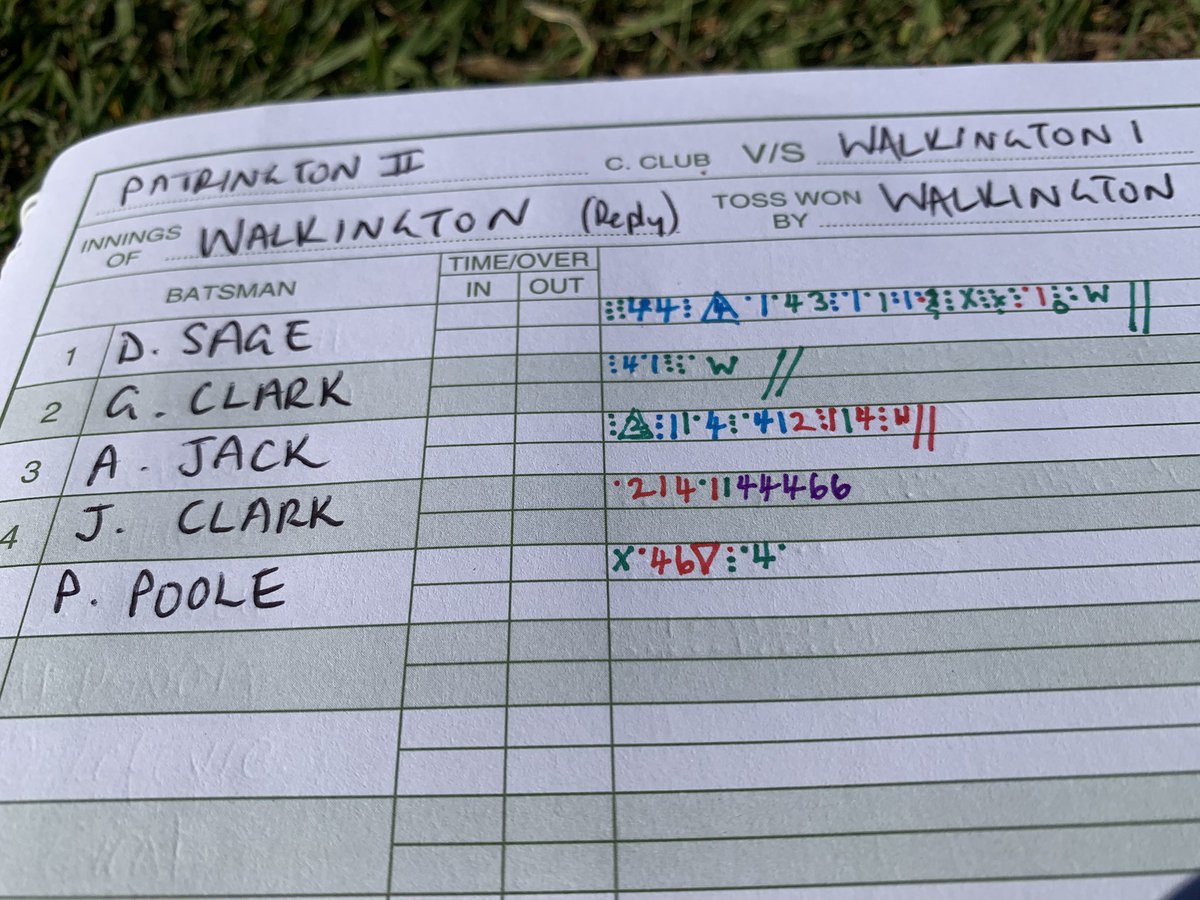 PATRINGTON II C. CLUB V/S WALKINGTON 1
INNINGS OF WALKINGTON (Reply) TOSS WON BY WALKINGTON
BATSMAN TIME/OVER
IN OUT
1 D. SAGE
2 G. CLARK 41 W //
3 A. JACK
4 J. CLARK ·214·1144466
P. POOLE X·46▽:·4·